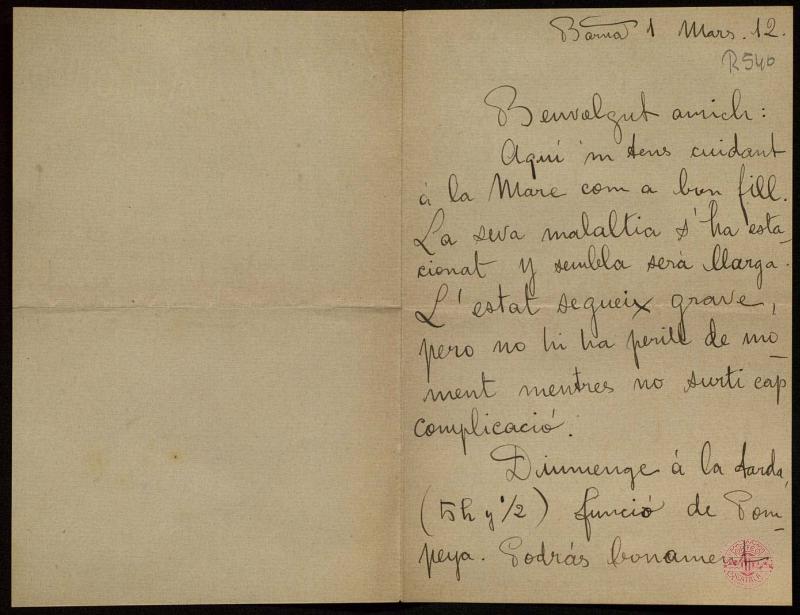 Barna 1 Mars. 12.
R540
Benvolgut amich:
Aquí 'm tens cuidant
á la Mare com a bon fill.
La seva malaltia s'ha esta-
cionat y sembla será llarga.
L'estat segueix grave,
pero no hi ha perill de mo-
ment mentres no surti cap
complicació.
Diumenge á la tarda,
(5 h y 1/2) funció de Pom-
peya. Podrás bonament